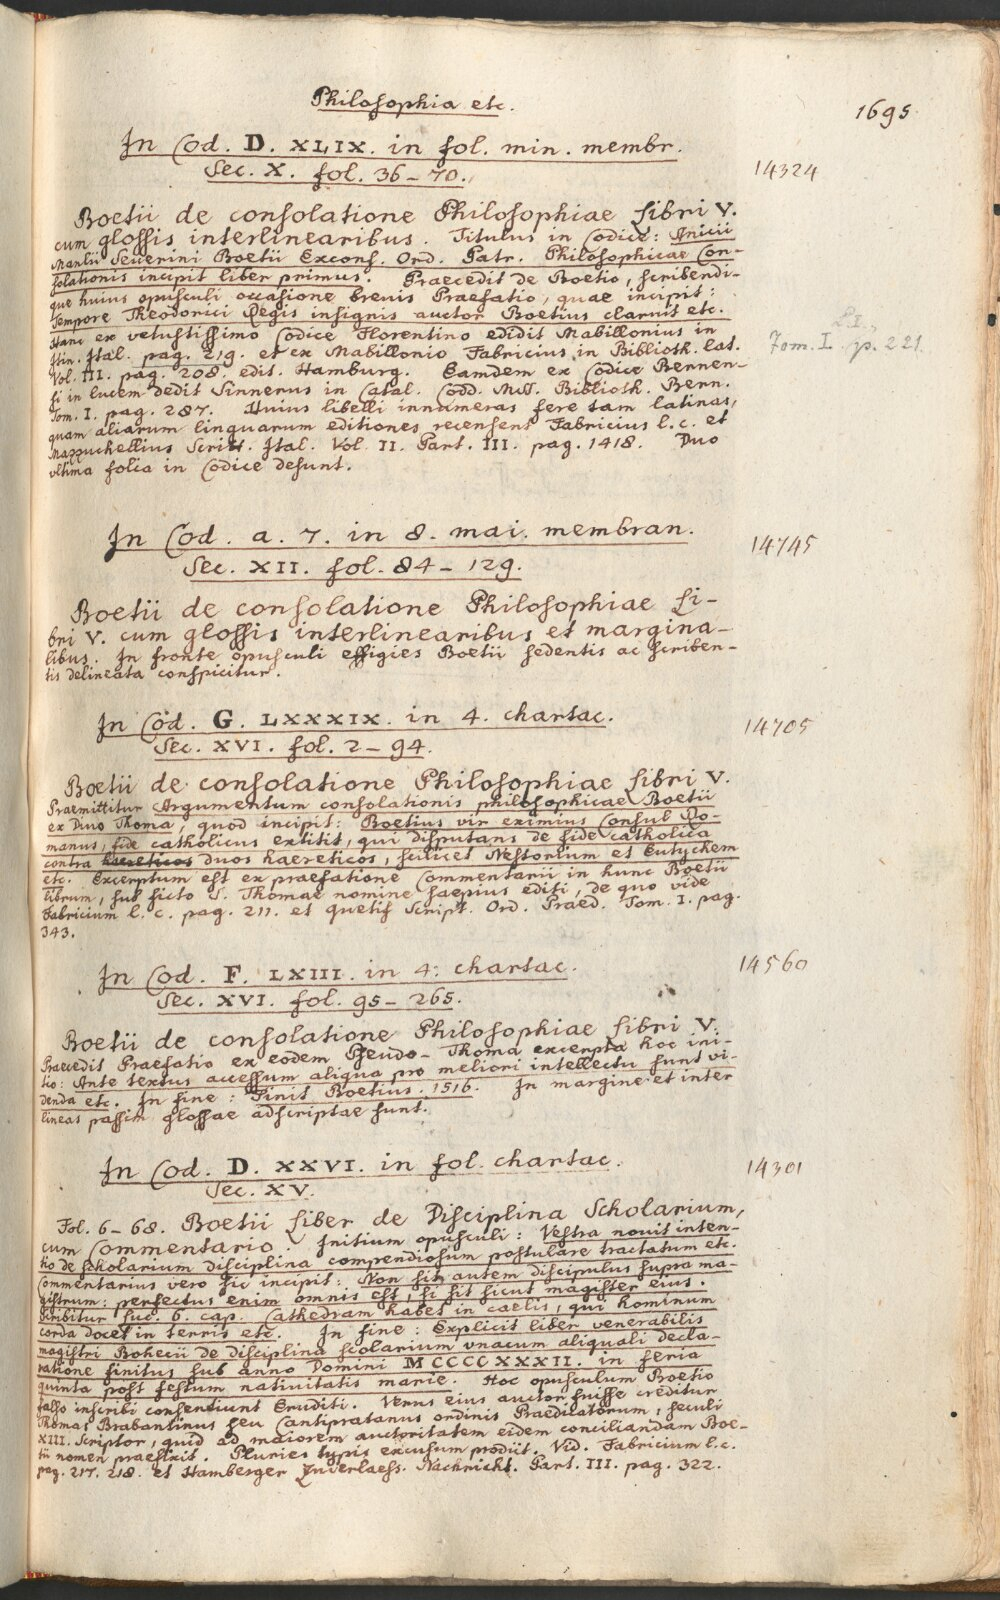 Philosophia etc.
1695
In Cod. D. XLIX. in fol. min. membr.
14324
Sec. X. fol. 36-70.
Boetii de consolatione Philosophiae libri V.
cum glossis interlinearibus. Titulus in Codice: Anicii
Manlii Seuerini Boetii Excons. Ord. Patr. Philosophicae Con-
solationis incipit liber primus. Praecedit de Boetio, scribendi-
que huius opusculi occasione breuis Praefatio, quae incipit:
Tempore Theodorici Regis insignis auctor Boetius claruit etc.
Hanc ex vetustissimo Codice Florentino edidit Mabillonius in
Itin. Ital. pag. 219. et ex Mabillonio Fabricius in Biblioth. lat.
Tom. I. p. 221.
Vol. III. pag. 208. edit. Hamburg. Eamdem ex Codice Bernen-
si in lucem dedit Sinnerus in Catal. Codd. Mss. Biblioth. Bern.
Tom. I. pag. 287. Huius libelli innumeras fere tam latinas,
quam aliarum linguarum editiones recensent Fabricius l. c. et
Mazzuchellius Scritt. Ital. Vol. II. Part. III. pag. 1418. Duo
vltima folia in Codice desunt.
In Cod. a. 7. in 8. mai. membran.
14745
Sec. XII. fol. 84-129.
Boetii de consolatione Philosophiae li-
bri V. cum glossis interlinearibus et margina-
libus. In fronte opusculi effigies Boetii sedentis ac scriben-
tis delineata conspicitur.
In Cod. G. LXXXIX. in 4. chartac.
14705
Sec. XVI. fol. 2-94.
Boetii de consolatione Philosophiae libri V.
Praemittitur Argumentum consolationis philosophicae Boetii
ex Diuo Thoma, quod incipit: Boetius vir eximius Consul Ro-
manus, fide catholicus extitit, qui disputans de fide catholica
contra haereticos duos haereticos, scilicet Nestorium et Eutychem
etc. Excerptum est ex praefatione Commentarii in hunc Boetii
librum, sub ficto S. Thomae nomine saepius editi, de quo vide
Fabricium l. c. pag. 211. et Quetif Script. Ord. Praed. Tom. I. pag.
343.
In Cod. F. LXIII. in 4. chartac.
14560
Sec. XVI. fol. 95-265.
Boetii de consolatione Philosophiae libri V.
Praecedit Praefatio ex eodem Pseudo-Thoma excerpta hoc ini-
tio: Ante textus accessum aliqua pro meliori intellectu sunt vi-
denda etc. In fine: Finit Boetius. 1516. In margine et inter
lineas passim glossae adscriptae sunt.
In Cod. D. XXVI. in fol. chartac.
14301
Sec. XV.
Fol. 6-68. Boetii Liber de Disciplina Scholarium,
cum Commentario. Initium opusculi: Vestra nouit inten-
tio de scholarium disciplina compendiosum postulare tractatum etc.
Commentarius vero sic incipit: Non sit autem discipulus supra ma-
gistrum: perfectus enim omnis est, si sit sicut magister eius.
scribitur Luc. 6. cap. Cathedram habet in caelis, qui hominum
corda docet in terris etc. In fine: Explicit liber venerabilis
magistri Bohecii de disciplina scolarium vnacum aliquali decla-
ratione finitus sub anno Domini MCCCCXXXII. in feria
quinta post festum natiuitatis marie. Hoc opusculum Boetio
falso inscribi consentiunt Eruditi. Verus eius auctor fuisse creditur
Thomas Brabantinus seu Cantipratanus ordinis Praedicatorum, seculi
XIII. Scriptor, quid ad maiorem auctoritatem eidem conciliandam Boe-
tii nomen praefixit. Pluries typis excusum prodiit. Vid. Fabricium l. c.
pag. 217. 218. et Hamberger Zuverlaess. Nachricht. Part. III. pag. 322.